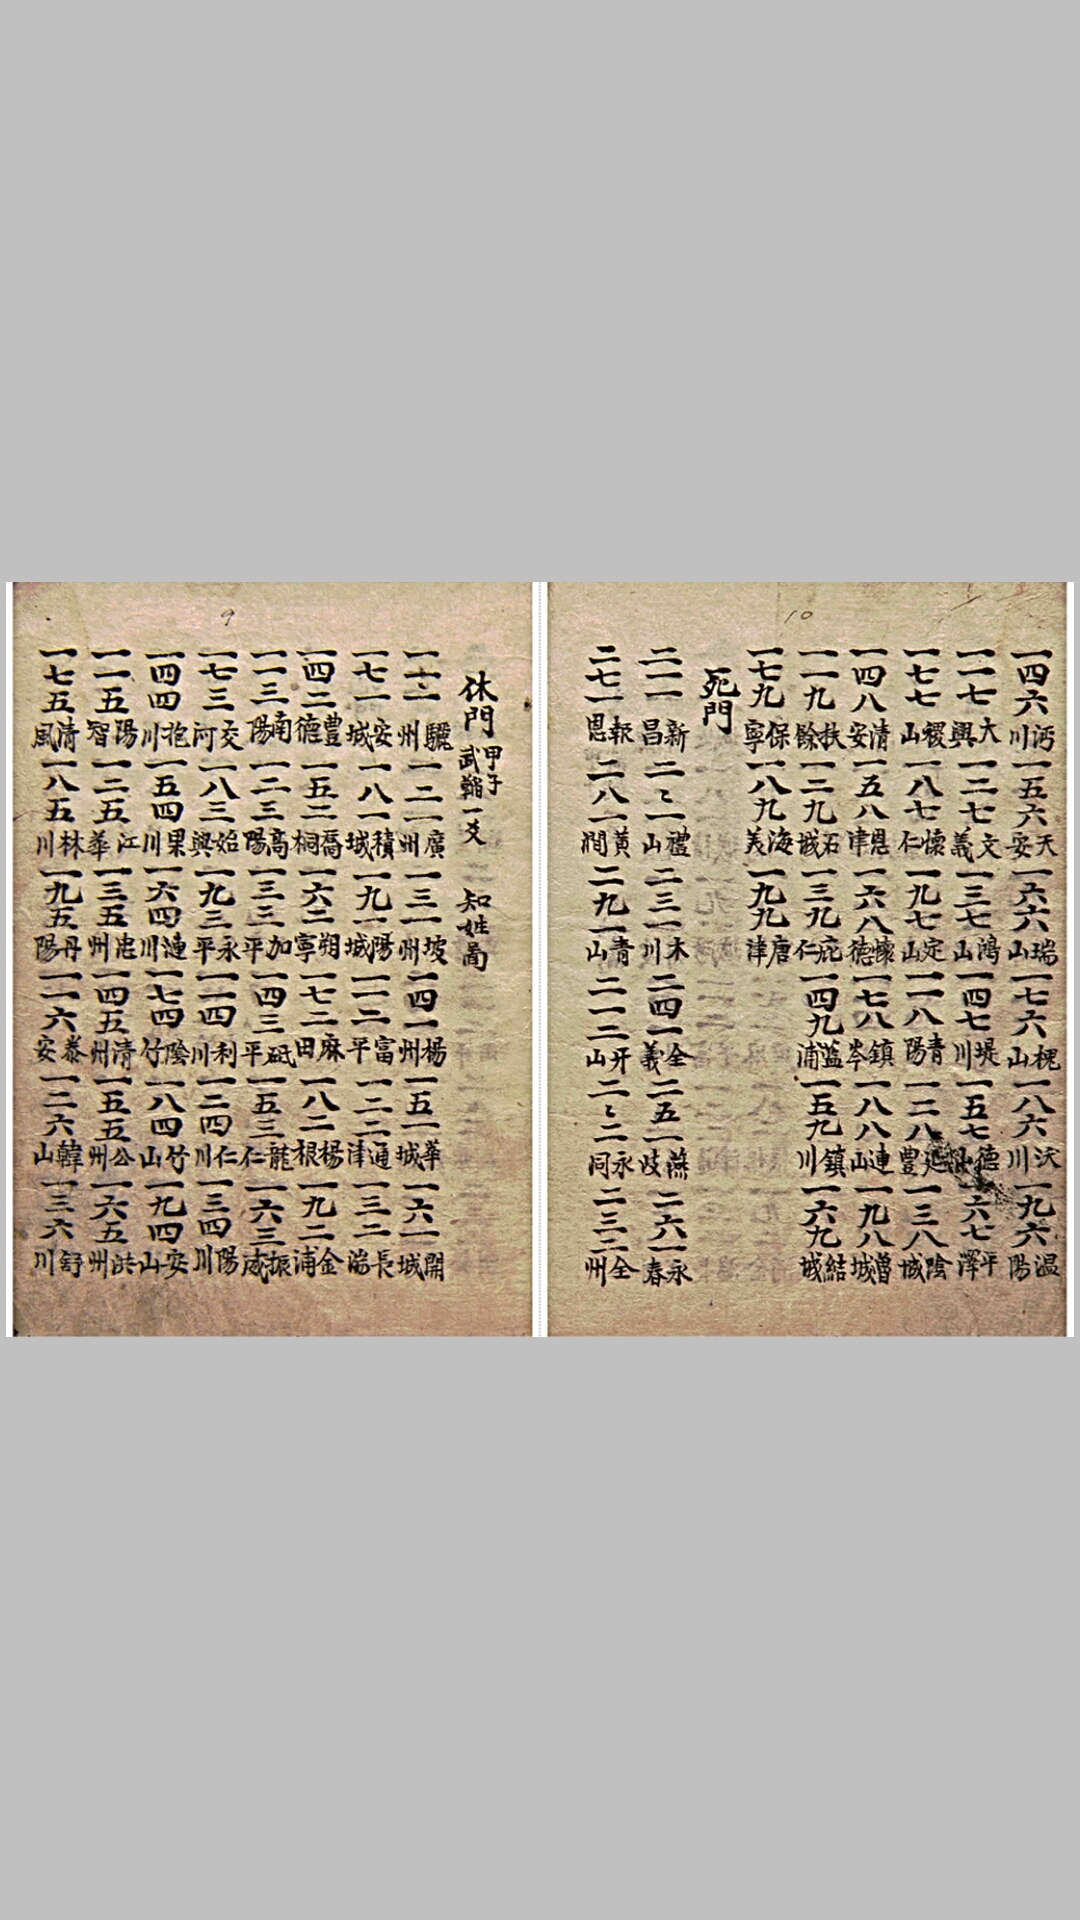 休門 甲子 武韜一爻 知姓局
一一一 驪州 一二一 廣州 一三一 坡州 一四一 楊州 一五一 華城 一六一 開城
一七一 安城 一八一 積城 一九一 陽城 一一二 富平 一二二 通津 一三二 長湍
一四二 豊德 一五二 喬桐 一六二 朔寧 一七二 麻田 一八二 楊根 一九二 金浦
一一三 南陽 一二三 高陽 一三三 加平 一四三 砥平 一五三 龍仁 一六三 振威
一七三 交河 一八三 始興 一九三 永平 一一四 利川 一二四 仁川 一三四 陽川
一四四 抱川 一五四 果川 一六四 漣川 一七四 陰竹 一八四 竹山 一九四 安山
一一五 陽智 一二五 江華 一三五 忠州 一四五 清州 一五五 公州 一六五 洪州
一七五 清風 一八五 林川 一九五 丹陽 一一六 泰安 一二六 韓山 一三六 舒川
9
一四六 沔川 一五六 天安 一六六 瑞山 一七六 槐山 一八六 沃川 一九六 温陽
一一七 大興 一二七 文義 一三七 鴻山 一四七 堤川 一五七 德山 一六七 平澤
一七七 稷山 一八七 懷仁 一九七 定山 一一八 青陽 一二八 延豊 一三八 陰城
一四八 清安 一五八 恩津 一六八 懷德 一七八 鎮岑 一八八 連山 一九八 魯城
一一九 扶餘 一二九 石城 一三九 庇仁 一四九 藍浦 一五九 鎮川 一六九 結城
一七九 保寧 一八九 海美 一九九 唐津
死門
二一一 新昌 二〻一 禮山 二三一 木川 二四一 全義 二五一 燕歧 二六一 永春
二七一 報恩 二八一 黄澗 二九一 青山 二一二 开山 二〻二 永同 二三二 全州
10